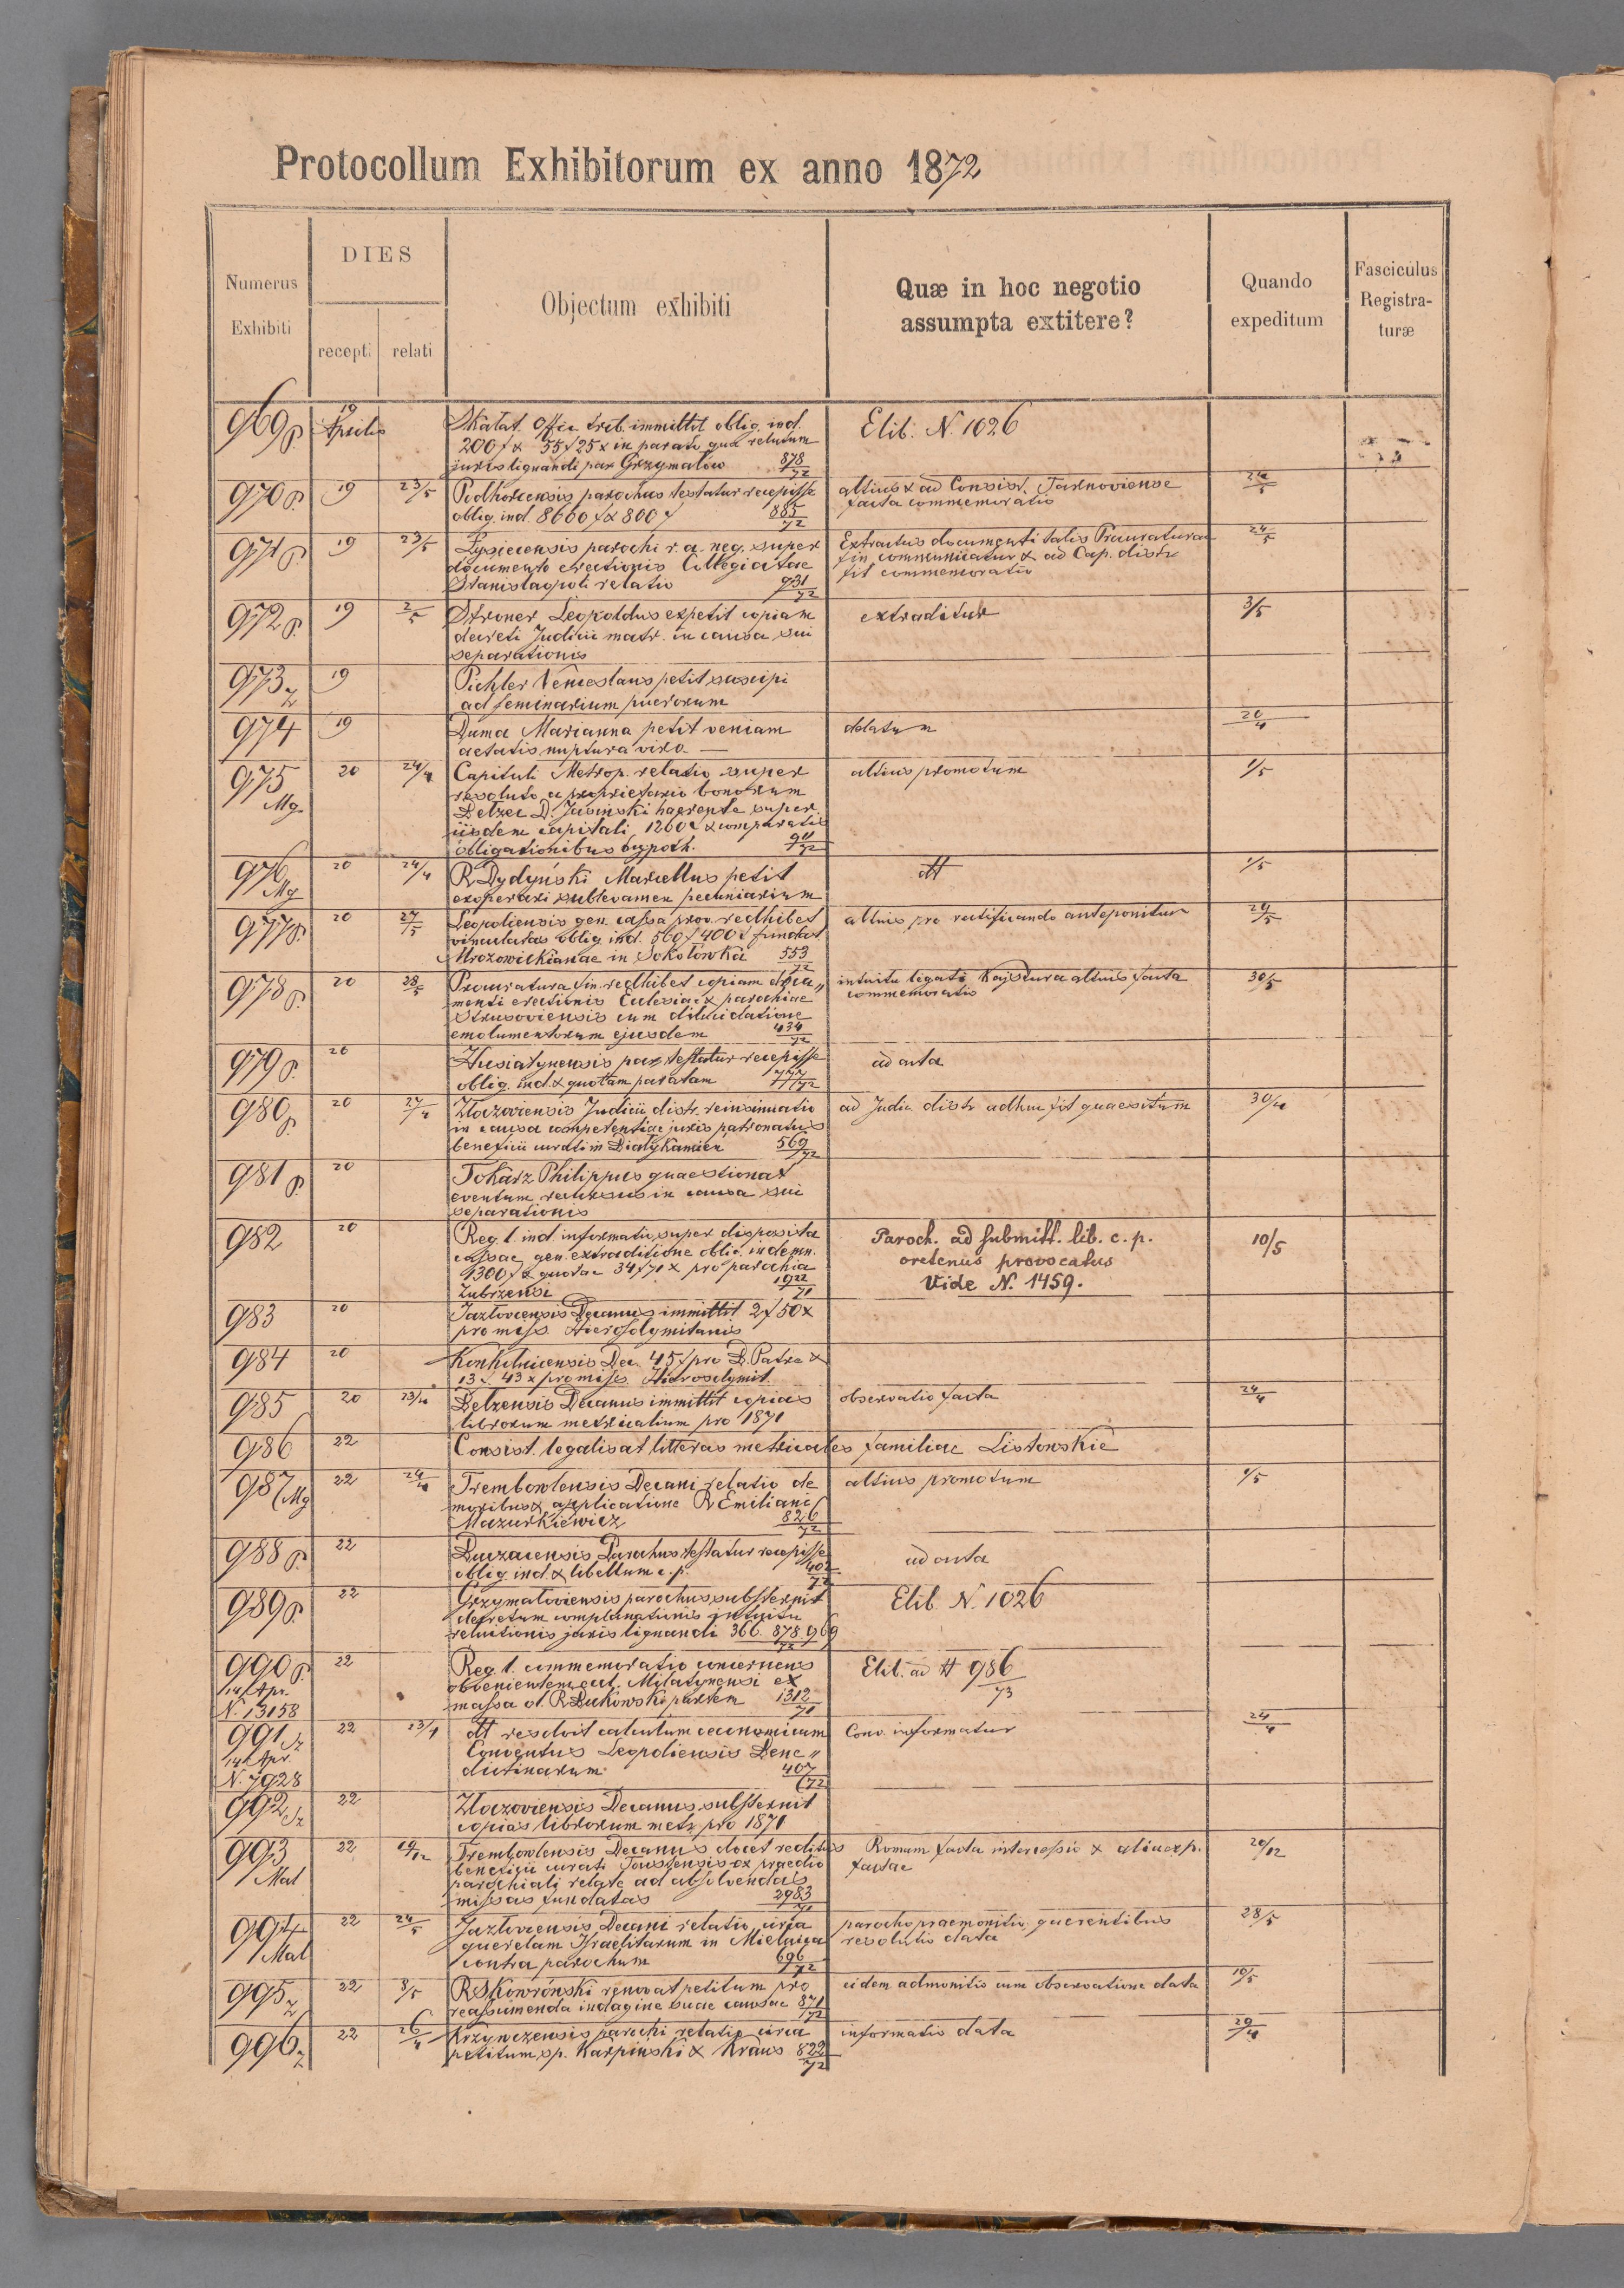 Protocollum Exhibitorum ex anno 1872
Numerus Exhibiti
DIES
recepti
relati
Objectum exhibiti
Quæ in hoc negotio assumpta extitere?
Quando expeditum
Fasciculus Registra-turæ
969 p. 19 Aprilis Skalat. Offic. trib. immittit oblig. ind. Elib. N. 1026
200 f & 55 f 25 x in parato qua relutum
juris lignandi par Grzymałow 878/72
970 p. 19 23/5 Podhorcensis parochus testatur recepisse altius & ad Consist. Tarnoviense 24/5
oblig. ind. 8660 f & 800 f 885/72 facta commemoratio
971 p. 19 23/5 Lysiecensis parochi r. a. neg. super Extractus documenti talis Procuraturae 24/5
documento erectionis Collegiatae fin communicatur & ad Cap. distr
Stanislaopoli relatio 931/72 fit commemoratio
972 p. 19 2/5 Stroner Leopoldus expetit copiam extraditur 3/5
decreti Judicii matr. in causa sui
separationis
973 z 19 Pichler Venceslaus petit suscipi
ad seminarium puerorum
974 19 Duma Marianna petit veniam datum 26/4
aetatis nuptura viro —
975 Mg. 20 24/4 Capituli Metrop. relatio super altius promotum 1/5
resoluto a proprietario bonorum
Betzec D. Jasinski haerente super
iisdem capitali 1260 & comparatis
obligationibus hypoth. 911/72
976 Mg 20 24/4 R Dydyński Marcellus petit dt 1/5
exoperari sublevamen pecuniarium
977 p. 20 27/5 Leopoliensis gen. cassa prov. redhibet altius pro rectificando anteponitur 29/5
vinculatas oblig. ind. 560 f 400 f fundat.
Mrozowickianae in Sokołowka 553/72
978 p. 20 28/5 Procuratura fin. redhibet copiam docu„ intuitu legati Kajsdura altius facta 30/5
menti erectionis Eclesiae & parochiae commemoratio
Strusoviensis cum dilucidatione
emolumentorum ejusdem 434/72
979 p. 20 Husiatynensis par testatur recepisse ad acta
oblig. ind. & quotam paratam 777/72
980 p 20 27/4 Złoczoviensis Judicii distr. reinsinuatio ad Judic. distr adhuc fit quaesitum 30/4
in causa competentiae juris patronatus
beneficii curati in Białykamień 569/72
981 p 20 Tokarz Philippus quaestionat
eventum recursus in causa sui
separationis
982 20 Reg. l. ind. informatio super disposita Paroch. ad submitt. lib. c. p. 10/5
cassae gen. extraditione oblig. indemn. oretenus provocatus
1300 f & quotae 34 f 71 x pro parochia Vide N. 1459.
Zubrzensi 1922/71
983 20 Jazłoviensis Decanus immittit 2 f 50 x
pro miss. Hierosolymitanis
984 20 Konkolnicensis Dec. 45 f pro D. Patre &
13 f 43 x pro miss. Hierosolymit.
985 20 23/4 Belzensis Decanus immittit copias observatio facta 24/4
librorum metricalium pro 1871
986 22 Consist. legalisat litteras metricales familiae Listowskie
987 Mg 22 29/4 Trembowlensis Decani relatio de altius promotum 1/5
moribus & applicatione R Emiliani
Mazurkiewicz 826/72
988 p. 22 Buczacensis Parochus testatur recepisse ad acta
oblig. ind. & libellum c. p. 402/72
989 p. 22 Grzymałoviensis parochus substernit Elib. N. 1026
decretum complanationis intuitu
reluitionis juris lignandi 366. 878. 969/72
990 p. 22 Reg. l. commemoratio concernens Elib. ad # 986/73
14 Apr. obvenientem eccl. Milatynensi ex
N. 13158 massa ol. R Bukowski partem 1312/71
991 22 23/4 dt resolvit calculum oeconomicum Conv. informatur 24/4
14 Apr. Conventus Leopoliensis Bene„
N. 7928 dictinarum 407/72
992 22 Złoczoviensis Decanus substernit
copias librorum metr. pro 1871
993 Mat 22 19/12 Trembowlensis Decanus docet reditus Romam facta intercessio & aliae exp. 20/12
beneficii curati Toustensis ex praedio factae
parochiali relate ad absolvendas
missas fundatas 2983/71
994 Mat 22 24/5 Jazłoviensis Decani relatio circa parocho praemonitio, querentibus 28/5
querelam Israelitarum in Mielnica resolutio data
contra parochum 696/72
995 z 22 8/5 R Skowroński renovat petitum pro eidem admonitio cum observatione data 10/5
reassumenda indagine suae causae 871/72
996 z 22 26/4 Krzywczensis parochi relatio circa informatio data 29/4
petitum sp. Karpinski & Kraus 822/72